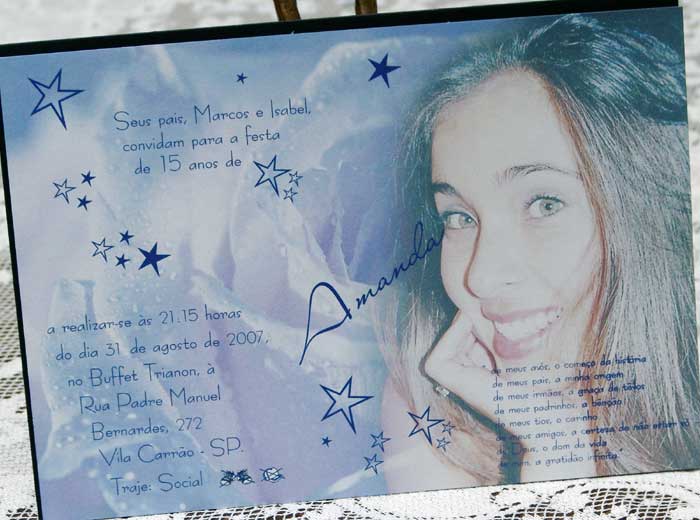 Seus pais, Marcos e Isabel,
convidam para a festa
de 15 anos de
Amanda
a realizar-se às 21:15 horas
do dia 31 de agosto de 2007,
no Buffet Trianon, à
Rua Padre Manuel
Bernardes, 272
Vila Carrão - SP.
Traje: Social
de meus avós, o começo da história
de meus pais, a minha origem
de meus irmãos, a graça de tê-los
de meus padrinhos, a benção
de meus tios, o carinho
de meus amigos, a certeza de não estar só
de Deus, o dom da vida
de mim, a gratidão infinita.